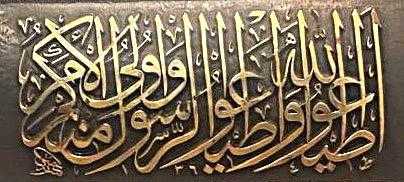 اطيعوا الله واطيعوا الرسول واولى الامر منكم